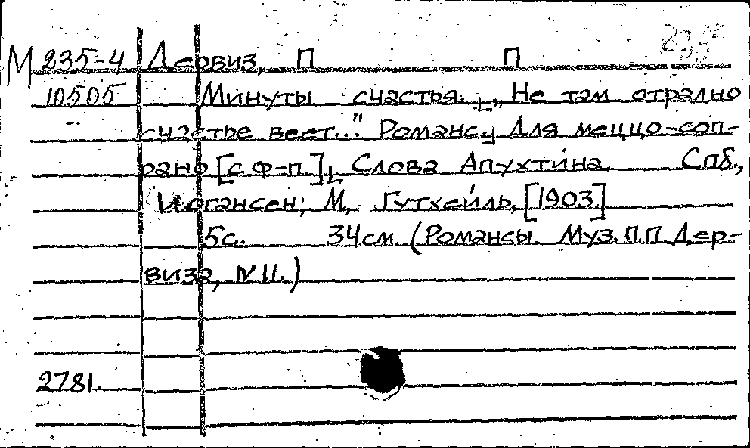 М 235-4 Дервиз, П П
10505 Минуты счастья. „Не там отрадно
счастье веет..." Романс. Для меццо-соп-
рано [с ф-п.], Слова Апухтина. Спб.,
Иогансен; М, Гутхейль, [1903]
5с. 34см. (Романсы. Муз. П.П Дер-
виза, №11.)
2781.